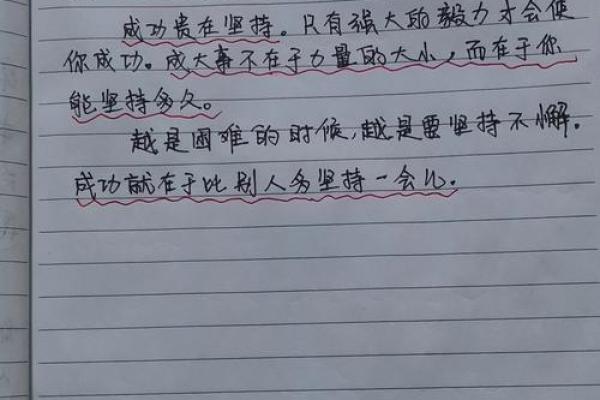 成功贵在坚持。只有强大的毅力才会使
你成功。成大事不在于力量的大小，而在于你
能坚持多久。
越是困难的时候，越是要坚持不懈。
成功就在于比别人多坚持一会儿。